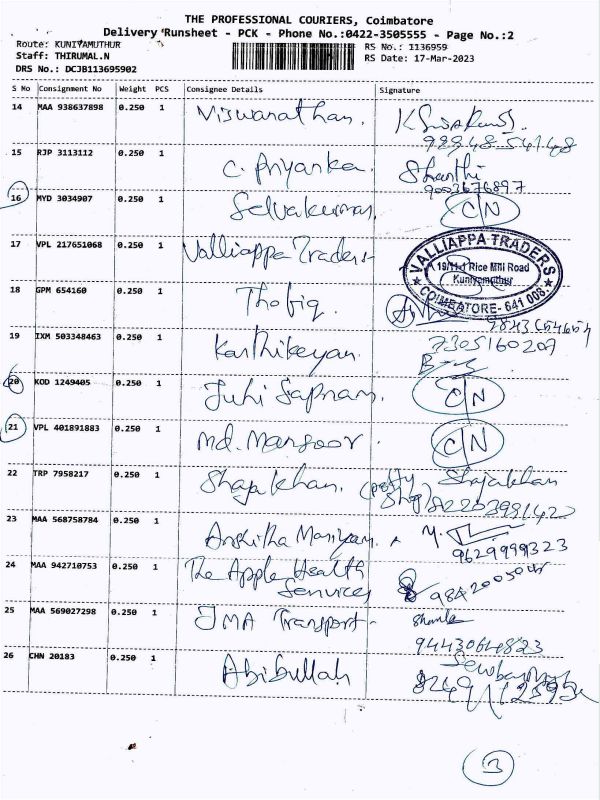 THE PROFESSIONAL COURIERS, Coimbatore
Delivery Runsheet - PCK - Phone No.:0422-3505555 - Page No.:2
Route: KUNIYAMUTHUR RS No.: 1136959
Staff: THIRUMAL.N RS Date: 17-Mar-2023
DRS No.: DCJB113695902
S No Consignment No Weight PCS Consignee Details Signature
14 MAA 938637898 0.250 1 Viswanathan.
15 RJP 3113112 0.250 1 C. Priyanka Shanthi
9003676897
16 MYD 3034907 0.250 1 Selvakumar. C/N
17 VPL 217651068 0.250 1 Valliappa Traders
VALLIAPPA TRADERS
Rice Mill Road
Kuniyamuthur
COIMBATORE- 641 008
18 GPM 654160 0.250 1 Thofiq.
19 IXM 503348463 0.250 1 Karthikeyan. 7305160207
20 KOD 1249405 0.250 1 Juhi Sapnam. C/N
21 VPL 401891883 0.250 1 Md. Mansoor. C/N
22 TRP 7958217 0.250 1 Shajakhan. (petty shop) Shajakhan
23 MAA 568758784 0.250 1
9629999323
24 MAA 942710753 0.250 1 The Apple Health
Services
25 MAA 569027298 0.250 1 JMA Transport
9443064823
26 CHN 20183 0.250 1 Abibullah
3